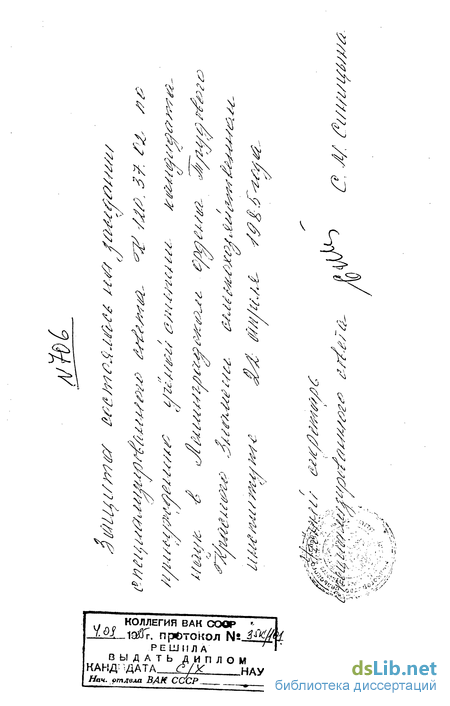 N 706
Защита состоялась на заседании
специализированного совета К 120.37.02 по
присуждению учёной степени кандидата
наук в Ленинградском ордена Трудового
Красного Знамени сельскохозяйственном
институте 22 апреля 1985 года
Учёный секретарь
специализированного совета С. М. Синицына
КОЛЛЕГИЯ ВАК СССР
4.09 1985г. протокол №
РЕШИЛА
ВЫДАТЬ ДИПЛОМ
КАНДИДАТА С/Х НАУК
Нач. отдела ВАК СССР
dsLib.net
библиотека диссертаций